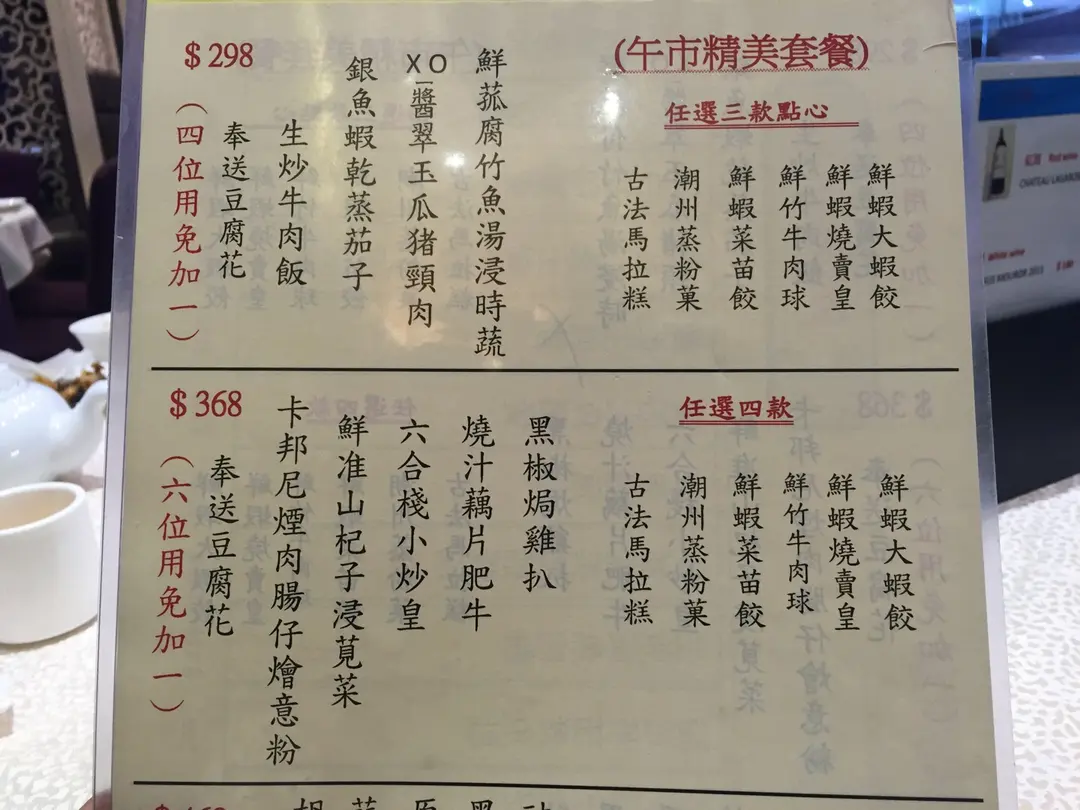 (午市精美套餐)
任選三款點心
鮮蝦大蝦餃
鮮蝦燒賣皇
鮮竹牛肉球
鮮蝦菜苗餃
潮州蒸粉菓
古法馬拉糕
鮮菰腐竹魚湯浸時蔬
XO醬翠玉瓜猪頸肉
銀魚蝦乾蒸茄子
生炒牛肉飯
奉送豆腐花
$298
(四位用免加一)
任選四款
鮮蝦大蝦餃
鮮蝦燒賣皇
鮮竹牛肉球
鮮蝦菜苗餃
潮州蒸粉菓
古法馬拉糕
黑椒焗雞扒
燒汁藕片肥牛
六合棧小炒皇
鮮准山杞子浸莧菜
卡邦尼煙肉腸仔燴意粉
奉送豆腐花
$368
(六位用免加一)